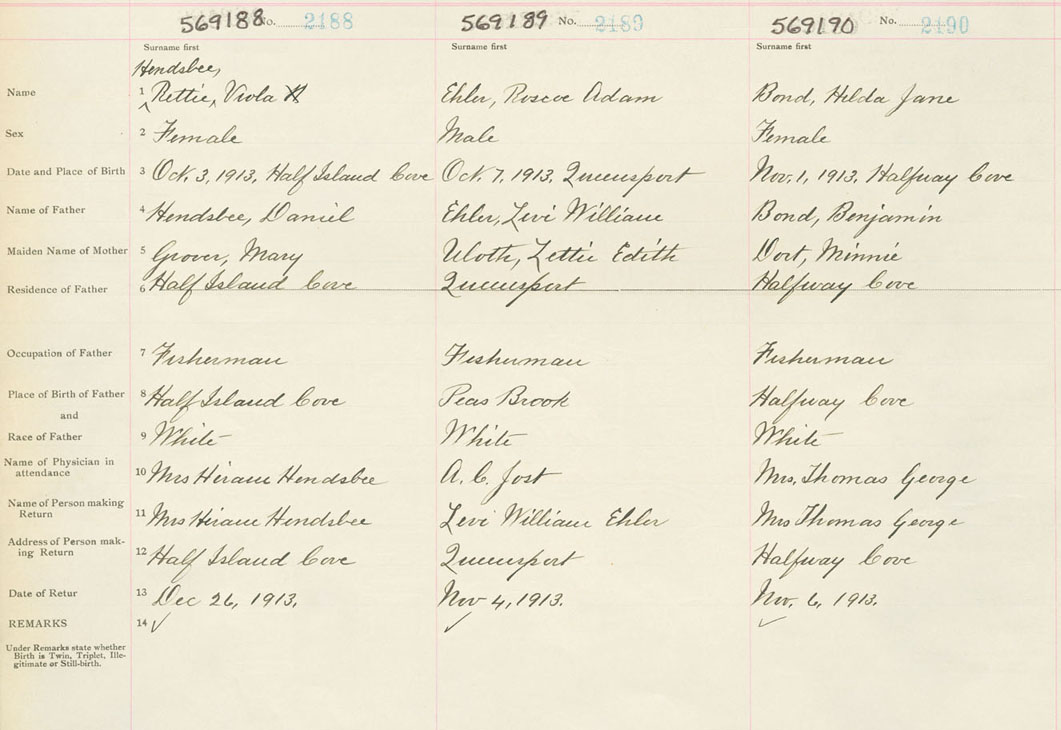 569188 No. 2188 569189 No. 2189 569190 No. 2190
Surname first Surname first Surname first
Hendsbee,
Name 1 Rettie, Viola Ehler, Roscoe Adam Bond, Hilda Jane
Sex 2 Female Male Female
Date and Place of Birth 3 Oct. 3, 1913, Half Island Cove Oct. 7, 1913, Queensport Nov. 1, 1913, Halfway Cove
Name of Father 4 Hendsbee, Daniel Ehler, Levi William Bond, Benjamin
Maiden Name of Mother 5 Grover, Mary Uloth, Lettie Edith Dort, Minnie
Residence of Father 6 Half Island Cove Queensport Halfway Cove
Occupation of Father 7 Fisherman Fisherman Fisherman
Place of Birth of Father 8 Half Island Cove Peas Brook Halfway Cove
and
Race of Father 9 White White White
Name of Physician in
attendance 10 Mrs Hiram Hendsbee A. C. Jost Mrs. Thomas George
Name of Person making
Return 11 Mrs Hiram Hendsbee Levi William Ehler Mrs Thomas George
Address of Person mak-
ing Return 12 Half Island Cove Queensport Halfway Cove
Date of Retur 13 Dec 26, 1913. Nov 4, 1913. Nov. 6, 1913.
REMARKS 14 ✓ ✓ ✓
Under Remarks state whether
Birth is Twin, Triplet, Ille-
gitimate or Still-birth.